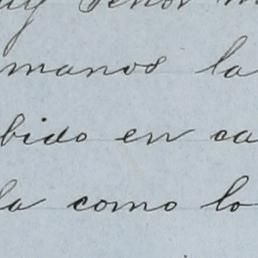 uy Señor m
manos la
bido en ca
la como lo